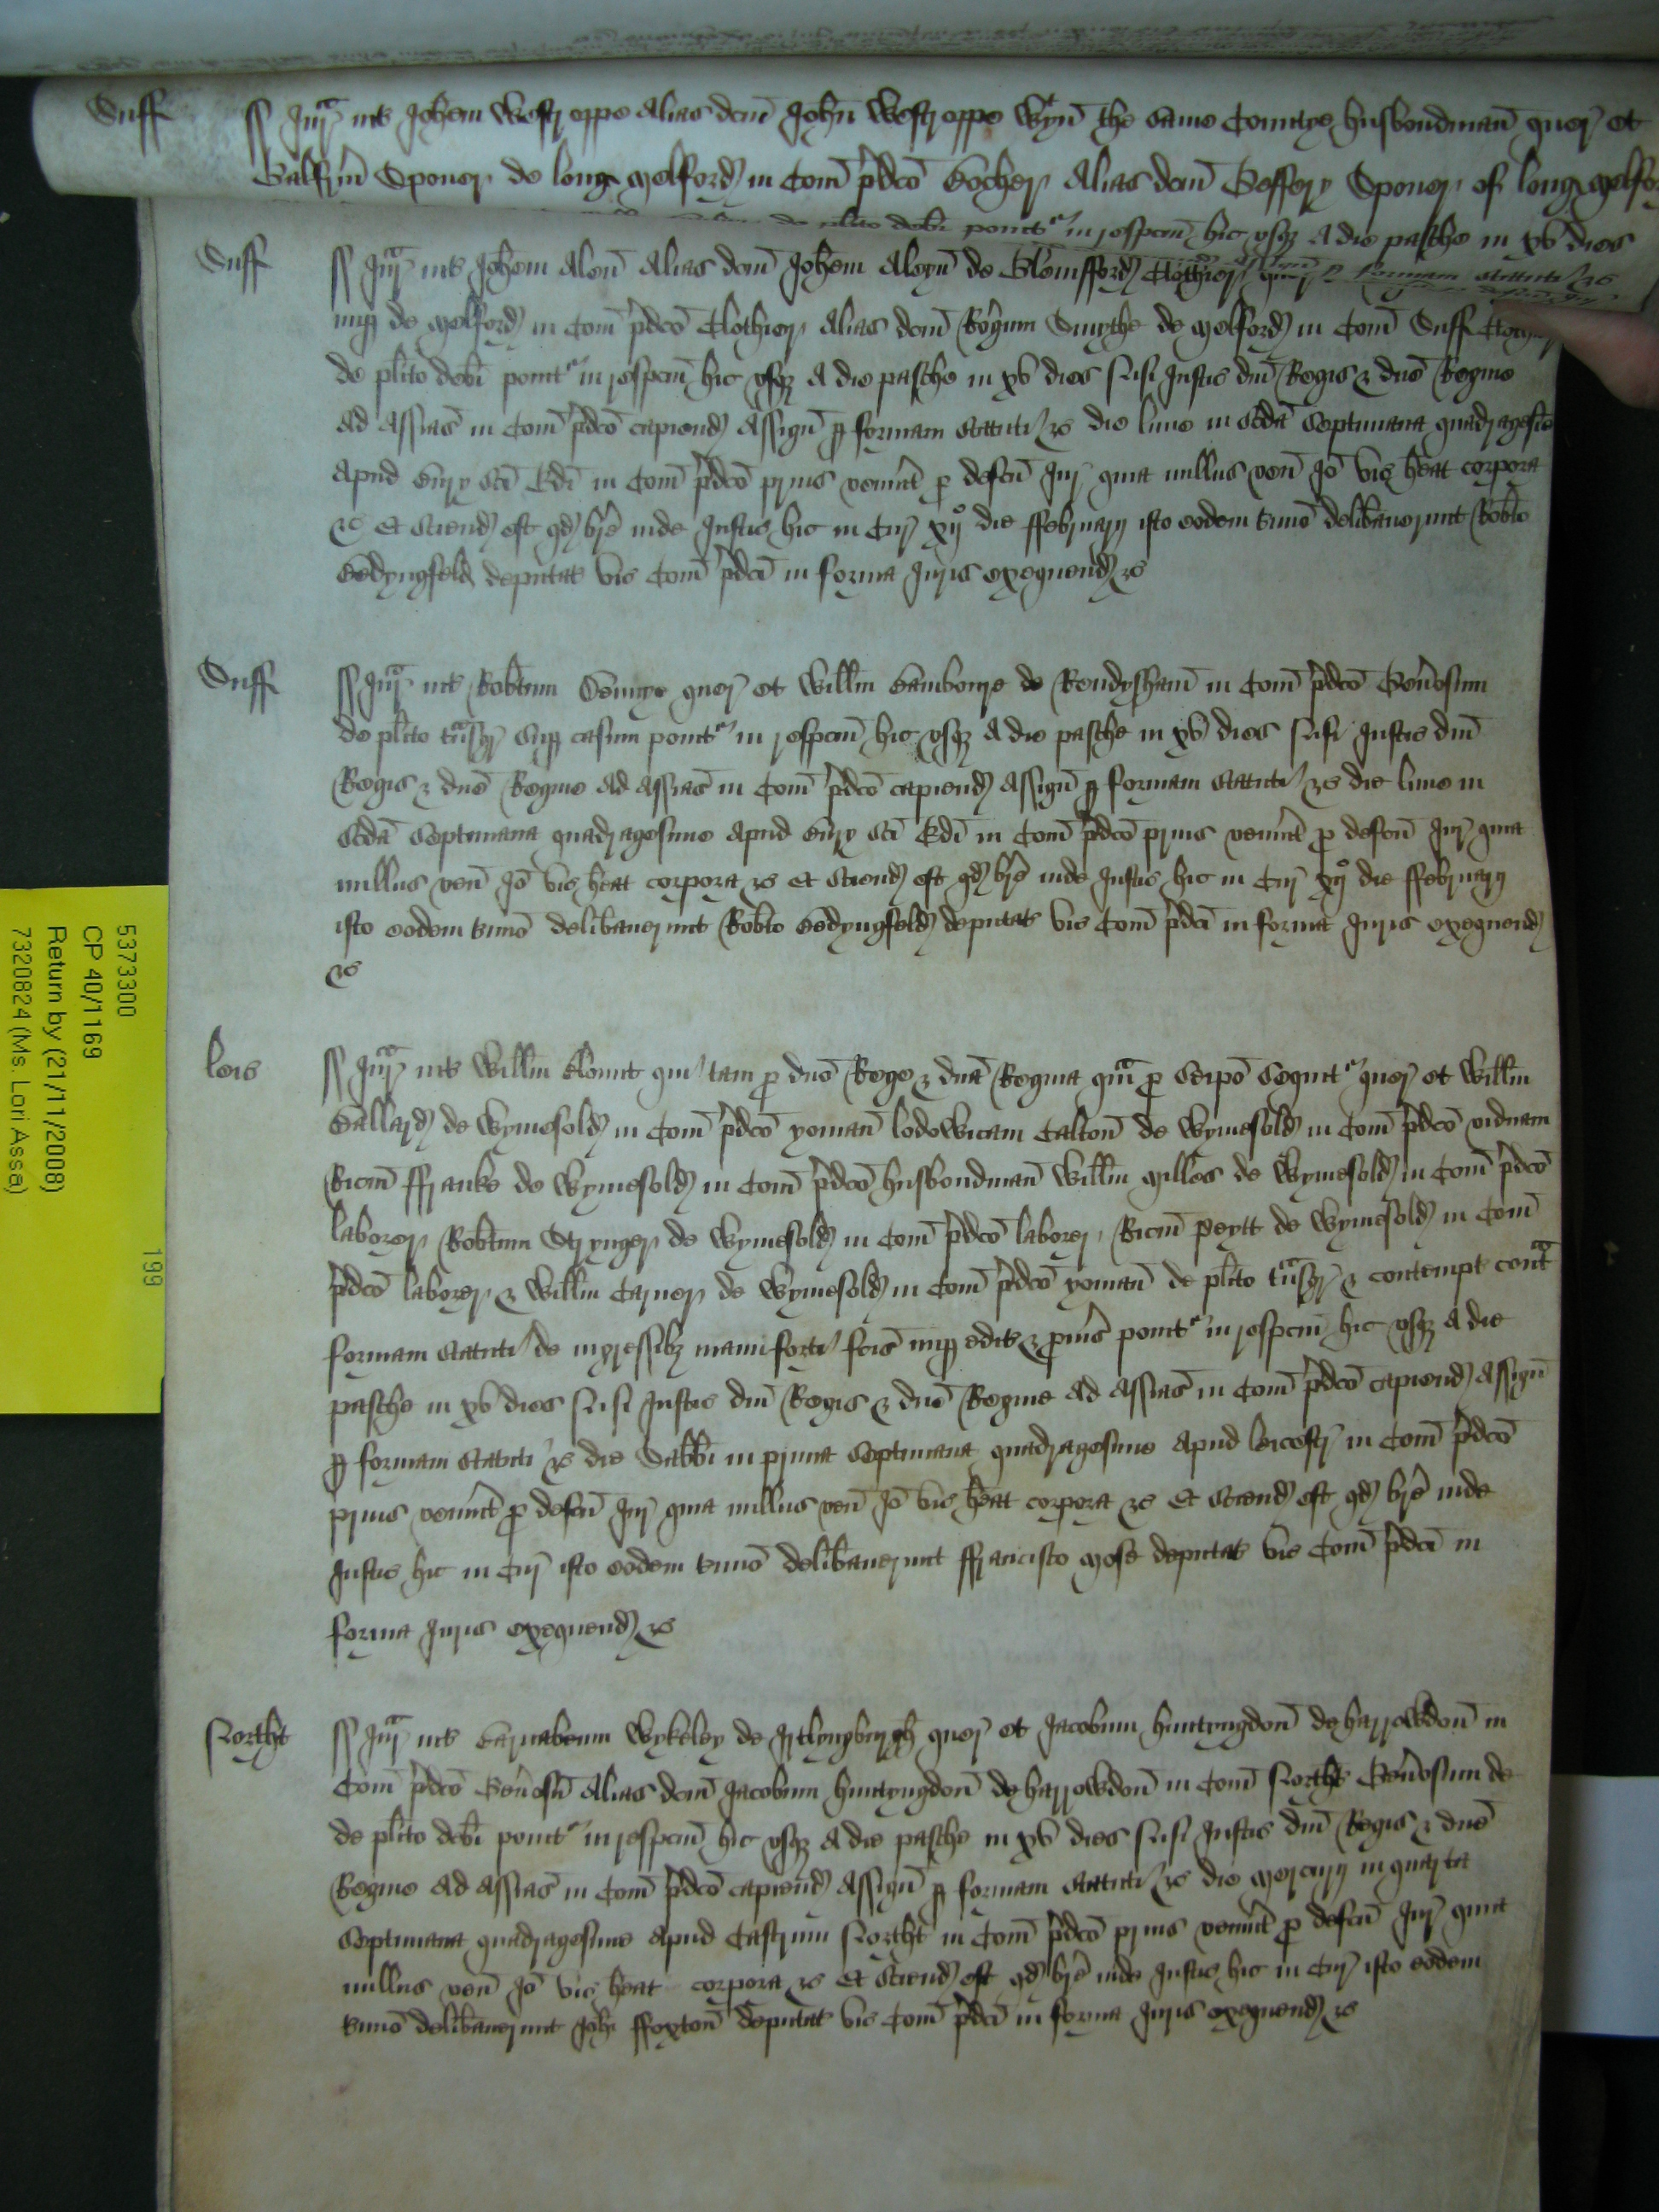 Suff
ss Jur' int' Joh'em Westroppe Alias dcm̄ John Westroppe wtyn the same Countye husbondman quer' et
Galfr'm Sponer de long Melford in Com̄ p'dcō Bocher Alias dcm̄ Geffery Sponer of long Melfo
de pl'ito deb'i ponit' in respc̄m hic usq3 A die pasche in xv dies
Suff
ss Jur' int' Joh'em Alen Alias dcm̄ Joh'em Aleyn de Clothier quer' p' formam statuti &c
nup' de Melford in Com̄ p'dcō Clothier Alias dcm̄ Rog'um Smythe de Melford in Com̄ Suff
de pl'ito deb'i ponit' in respc̄m hic usq3 A die pasche in xv dies Nisi Justic' dn̄i Regis & dn̄e Regine
ad Assias in Com̄ p'dcō capiend' Assign' p' formam statuti &c die lune in scd'a Septimana quadragesime
apud Bury sc̄i Ed'i in Com̄ p'dcō prius ven'int p' defc̄u Jur' quia nullus ven' Jō vic' h'eat corpora
&c Et sciend' est qd' br'e inde Justic' hic in Cur' xijo die ffebruarij isto eodem t'mio delib'auerunt Rob'to
Bedyngfeld deputat' vic' Com̄ p'dc̄i in forma Juris exequend' &c
Suff
ss Jur' int' Rob'tum quer' et Will'm de Rendysham in Com̄ p'dcō Gen'osum
de pl'ito t'nsgr' sup' casum ponit' in respc̄m hic usq3 A die pasche in xv dies Nisi Justic' dn̄i
Regis & dn̄e Regine ad Assias in Com̄ p'dcō capiend' Assign' p' formam statuti &c die lune in
scd'a Septimana quadragesime apud Bury sc̄i Ed'i in Com̄ p'dcō prius ven'int p' defc̄u Jur' quia
nullus ven' Jō vic' h'eat corpora &c Et sciend' est qd' br'e inde Justic' hic in Cur' xijo die ffebruarij
isto eodem t'mio delib'auerunt Rob'to Bedyngfeld deputat' vic' Com̄ p'dc̄i in forma Juris exequend'
&c
leic'
ss Jur' int' Will'm Blount qui tam p' dn̄o Rege & dn̄a Regina qm̄ p' seip'o sequit' quer' et Will'm
Ballard de Wymesold in Com̄ p'dcō yoman lodowicam Calton de Wymesold in Com̄ p'dcō viduam
Ric'm ffranke de Wymesold in Com̄ p'dcō husbondman Will'm Milles de Wymesold in Com̄ p'dcō
laborer Rob'tum Strynger de Wymesold in Com̄ p'dcō laborer Ric'm Peytt de Wymesold in Com̄
p'dcō laborer & Will'm Carver de Wymesold in Com̄ p'dcō yoman de pl'ito t'nsgr' & contempt' cont'
formam statuti de ingressib3 manuforti fc̄is nup' edit' & p'uis' ponit' in respc̄m hic usq3 A die
pasche in xv dies Nisi Justic' dn̄i Regis & dn̄e Regine ad Assias in Com̄ p'dcō capiend' Assign'
p' formam statuti &c die Sabb'i in prima Septimana quadragesime apud leicestr' in Com̄ p'dcō
prius ven'int p' defc̄u Jur' quia nullus ven' Jō vic' h'eat corpora &c Et sciend' est qd' br'e inde
Justic' hic in Cur' isto eodem t'mio delib'auerunt ffrancisco Mose deputat' vic' Com̄ p'dc̄i in
forma Juris exequend' &c
Northt
ss Jur' int' Barnabeum Wykeley de Irtlyngburgh quer' et Jacobum huntyngdon de harrowdon in
Com̄ p'dcō Gen'osū Alias dcm̄ Jacobum huntyngdon de harrowdon in Com̄ Northt Gen'osum de
de pl'ito deb'i ponit' in respc̄m hic usq3 A die pasche in xv dies Nisi Justic' dn̄i Regis & dn̄e
Regine ad Assias in Com̄ p'dcō capiend' Assign' p' formam statuti &c die Mercurij in quarta
Septimana quadragesime apud Castrum Northt in Com̄ p'dcō prius ven'int p' defc̄u Jur' quia
nullus ven' Jō vic' h'eat corpora &c Et sciend' est qd' br'e inde Justic' hic in Cur' isto eodem
t'mio delib'auerunt Joh'i ffoxton deputat' vic' Com̄ p'dc̄i in forma Juris exequend' &c
5373300
CP 40/1169
Return by (21/11/2008)
7320824 (Ms. Lori Assa)
199